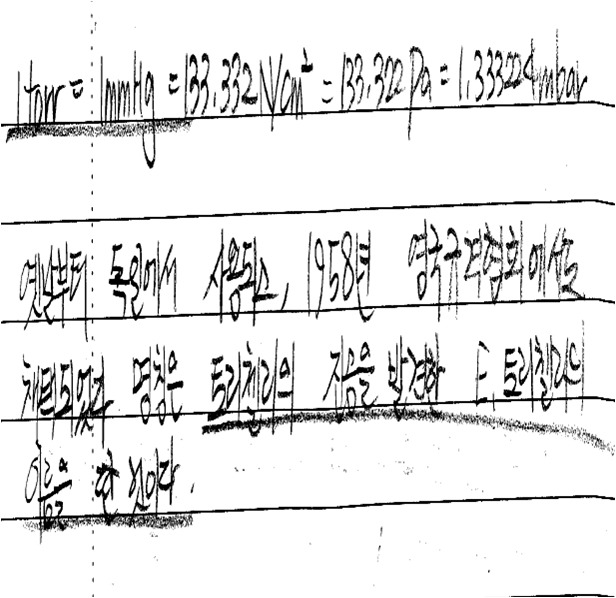 1torr = 1mmHg = 133.332N/cm² = 133.322Pa = 1.333224mbar
옛날부터 독일에서 사용되고, 1958년 영국규격협회에서도
채택되었다 명칭은 토리첼리의 진공을 발견한 E. 토리첼리의
이름을 딴 것이다.